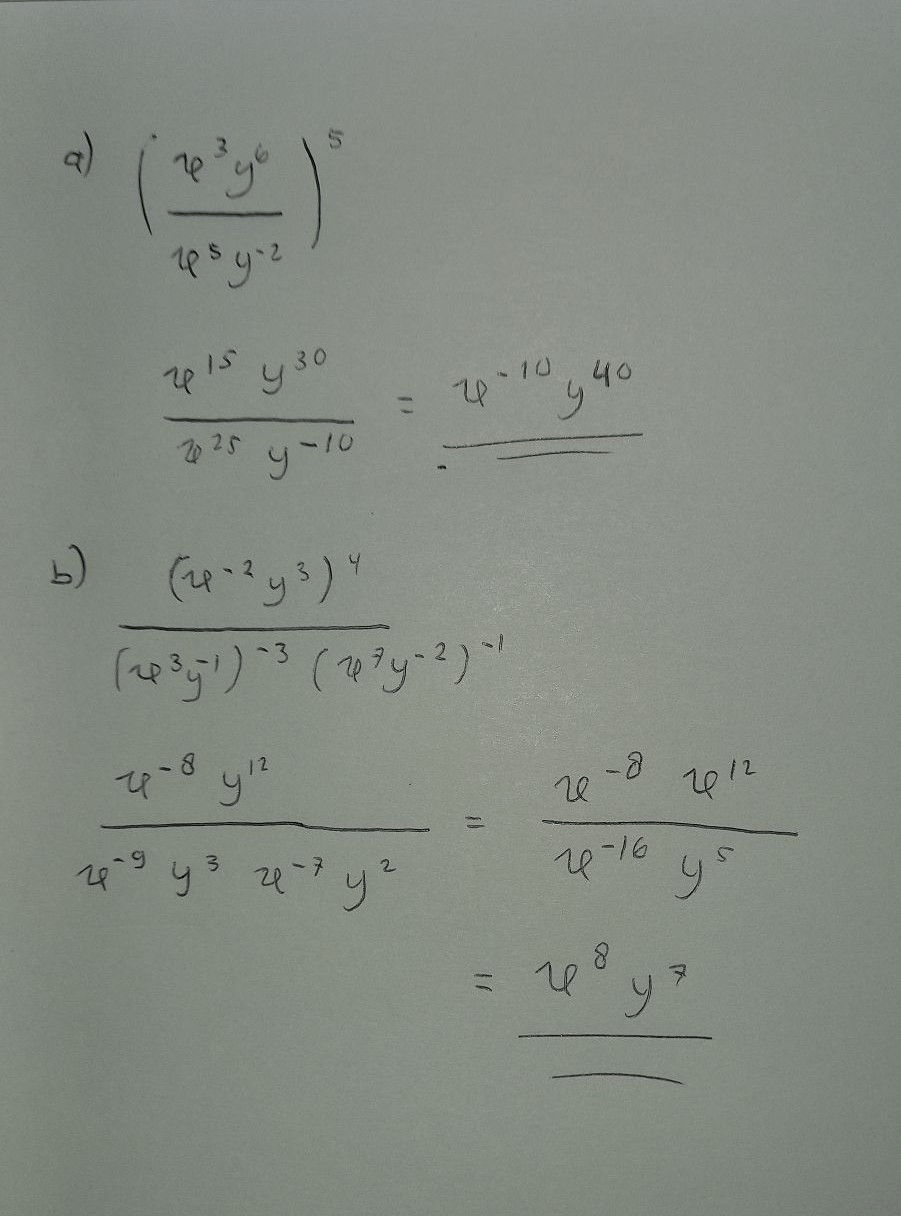 a) (x³y⁶ / x⁵y⁻²)⁵
x¹⁵ y³⁰ / x²⁵ y⁻¹⁰ = x⁻¹⁰ y⁴⁰
b) (x⁻² y³)⁴ / (x³y⁻¹)⁻³ (x⁷y⁻²)⁻¹
x⁻⁸ y¹² / x⁻⁹ y³ x⁻⁷ y² = x⁻⁸ x¹² / x⁻¹⁶ y⁵
= x⁸ y⁷